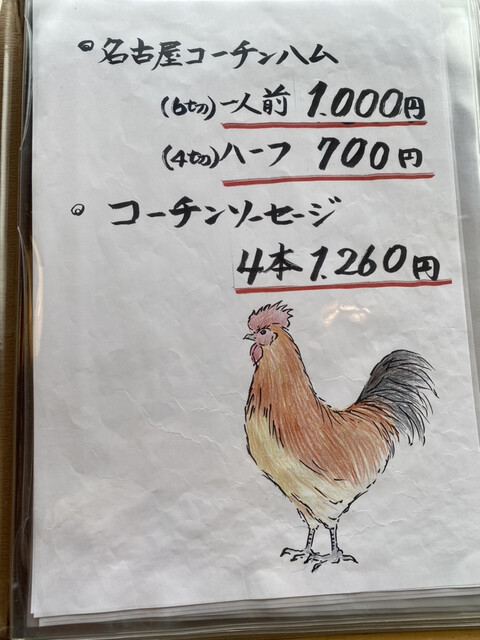 名古屋コーチンハム
(6切)一人前 1.000円
(4切)ハーフ 700円
コーチンソーセージ
4本 1.260円